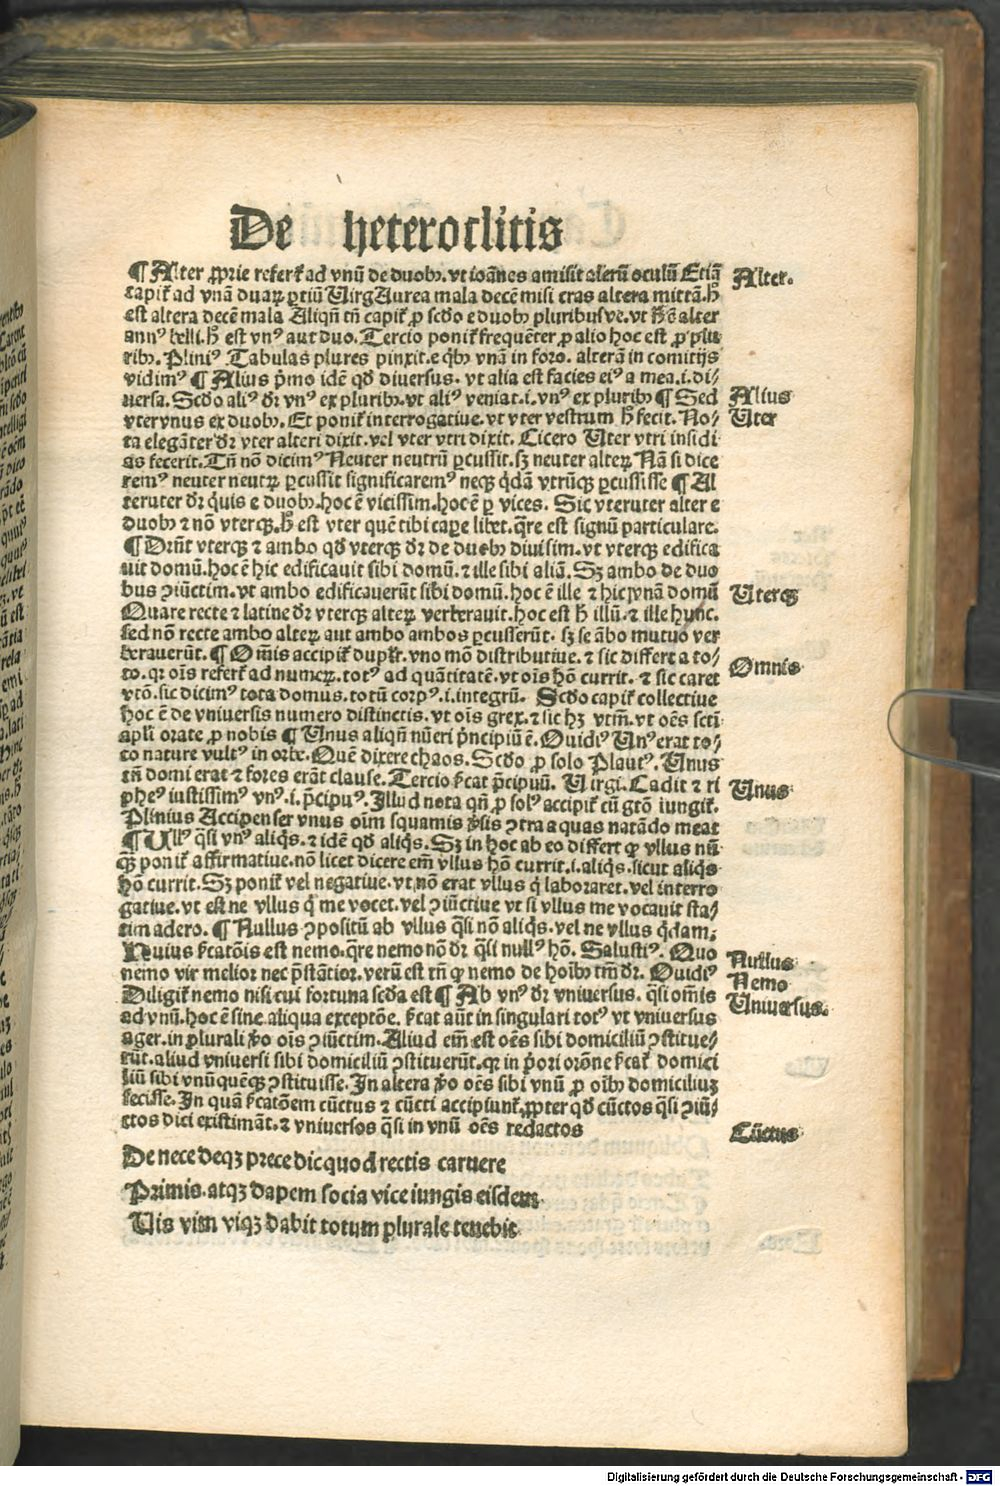 De heteroclitis
¶ Alter ꝓprie referꝉ ad vnū de duobꝰ. vt ioānes amisit alterū oculū Etiā
capiꝉ ad vnā duaꝝ ꝑtiū Virg Aurea mala decē misi cras altera mittā. h̄
est altera decē mala Aliqn̄ tn̄ capiꝉ ꝓ scdo e duobꝫ pluribusve. vt h̄ ē alter
annꝰ belli. h̄ est vnꝰ aut duo. Tercio poniꝉ frequēter ꝓ alio hoc est ꝓ plu
ribꝫ. Pliniꝰ Tabulas plures pinxit. e q̄bꝫ vnā in foro. alterā in comitijs
vidimꝰ ¶ Alius pͥmo idē qđ diuersus. vt alia est facies eiꝰ a mea .i. di/
uersa. Scđo aliꝰ dr̄ vnꝰ ex pluribꝫ. vt aliꝰ veniat .i. vnꝰ ex pluribꝫ ¶ Sed
vter vnus ex duobꝫ. Et poniꝉ interrogatiue. vt vter vestrum h̄ fecit. No/
ta elegāter dr̄ vter alteri dixit. vel vter vtri dixit. Cicero Vter vtri insidi
as fecerit. Tn̄ nō dicimꝰ Neuter neutrū ꝑcussit. sꝫ neuter alteꝝ Nā si dice
remꝰ neuter neutꝝ ꝑcussit significaremꝰ neqꝫ q̄dā vtrūqꝫ ꝑcussisse ¶ Al
teruter dr̄ q̄uis e duobꝫ. hoc ē vicissim. hoc ē ꝑ vices. Sic vteruter alter e
duobꝫ ⁊ nō vterqꝫ. h̄ est vter quē tibi caꝑe libet. q̄re est signū particulare.
¶ Drn̄t vterqꝫ ⁊ ambo qđ vterqꝫ dr̄ de duobꝫ diuisim. vt vterqꝫ edifica
uit domū. hoc ē hic edificauit sibi domū. ⁊ ille sibi aliā. Sꝫ ambo de duo
bus ꝯiūctim. vt ambo edificauerūt sibi domū. hoc ē ille ⁊ hic vnā domū
Quare recte ⁊ latine dr̄ vterqꝫ alteꝝ verberauit. hoc est h̄ illū. ⁊ ille hunc.
sed nō recte ambo alteꝝ aut ambo ambos ꝑcusserūt. sꝫ se ābo mutuo ver
berauerūt. ¶ Om̄is accipiꝉ duplr̄. vno mō distributiue. ⁊ sic differt a to/
to. qr ois referꝉ ad numeꝝ. totꝰ ad quātitatē. vt ois hō currit. ⁊ sic caret
vtō. sic dicimꝰ tota domus. totū corpꝰ .i. integrū. Scđo capiꝉ collectiue
hoc ē de vniuersis numero distinctis. vt ois grex. ⁊ sic hꝫ vtm̄. vt oēs scti
apl̄i orate ꝓ nobis ¶ Vnus aliqn̄ nūeri pͥncipiū ē. Ouidiꝰ Vnꝰ erat to/
to nature vultꝰ in orbe. Quē dixere chaos. Scđo ꝓ solo Plautꝰ. Vnus
tn̄ domi erat ⁊ fores erāt clause. Tercio ẜcat pͥcipuū. Virgi. Cadit ⁊ ri
pheꝰ iustissimꝰ vnꝰ .i. pͥcipuꝰ. Illud nota qn̄ ꝓ solꝰ accipiꝉ cū gtō iungiꝉ.
Plinius Accipenser vnus oīm squamis ꝟsis ꝯtra aquas natādo meat
¶ Vllꝰ q̄si vnꝰ aliqs. ⁊ idē qđ aliqs. Sꝫ in hoc ab eo differt qꝫ vllus nū
qꝫ poniꝉ affirmatiue. nō licet dicere em̄ vllus hō currit .i. aliqs. sicut aliqs
hō currit. Sꝫ poniꝉ vel negatiue. vt nō erat vllus q̇ laboraret. vel interro
gatiue. vt estne vllus q̇ me vocet. vel ꝯiūctiue vt si vllus me vocauit sta/
tim adero. ¶ Nullus ꝯpositū ab vllus q̄si nō aliqs. vel ne vllus q̄dam;
Huius ẜcatōis est nemo. q̄re nemo nō dr̄ q̄si nullꝰ hō. Salustiꝰ. Quo
nemo vir melior nec pͥstātior. verū est tn̄ qꝫ nemo de hoībꝫ tm̄ dr̄. Ouidiꝰ
Diligiꝉ nemo nisi cui fortuna scđa est ¶ Ab vnꝰ dr̄ vniuersus. q̄si om̄is
ad vnū. hoc ē sine aliqua exceptōe. ẜcat aūt in singulari totꝰ vt vniuersus
ager. in plurali ꝟo ois ꝯiūctim. Aliud em̄ est oēs sibi domiciliū ꝯstitue/
rūt. aliud vniuersi sibi domiciliū ꝯstituerūt. qr in pͥori orōne ẜcatꝉ domici
liū sibi vnūquēqꝫ ꝯstituisse. In altera ꝟo oēs sibi vnū ꝓ oībꝫ domiciliuꝫ
fecisse. In qua ẜcatōem cūctus ⁊ cūcti accipiunꝉ. ꝓpter qđ cūctos q̄si ꝯiū/
ctos dici existimāt. ⁊ vniuersos q̄si in vnū oēs redactos
De nece deqꝫ prece dic quod rectis caruere
Primis. atqꝫ dapem socia vice iungis eisdem
Vis vim viqꝫ dabit totum plurale tenebit
Alter.
Alius
Vter
Vterqꝫ
Omnis
Vnus
Nullus
Nemo
Vniuersus.
Cūctus
Digitalisierung gefördert durch die Deutsche Forschungsgemeinschaft - DFG